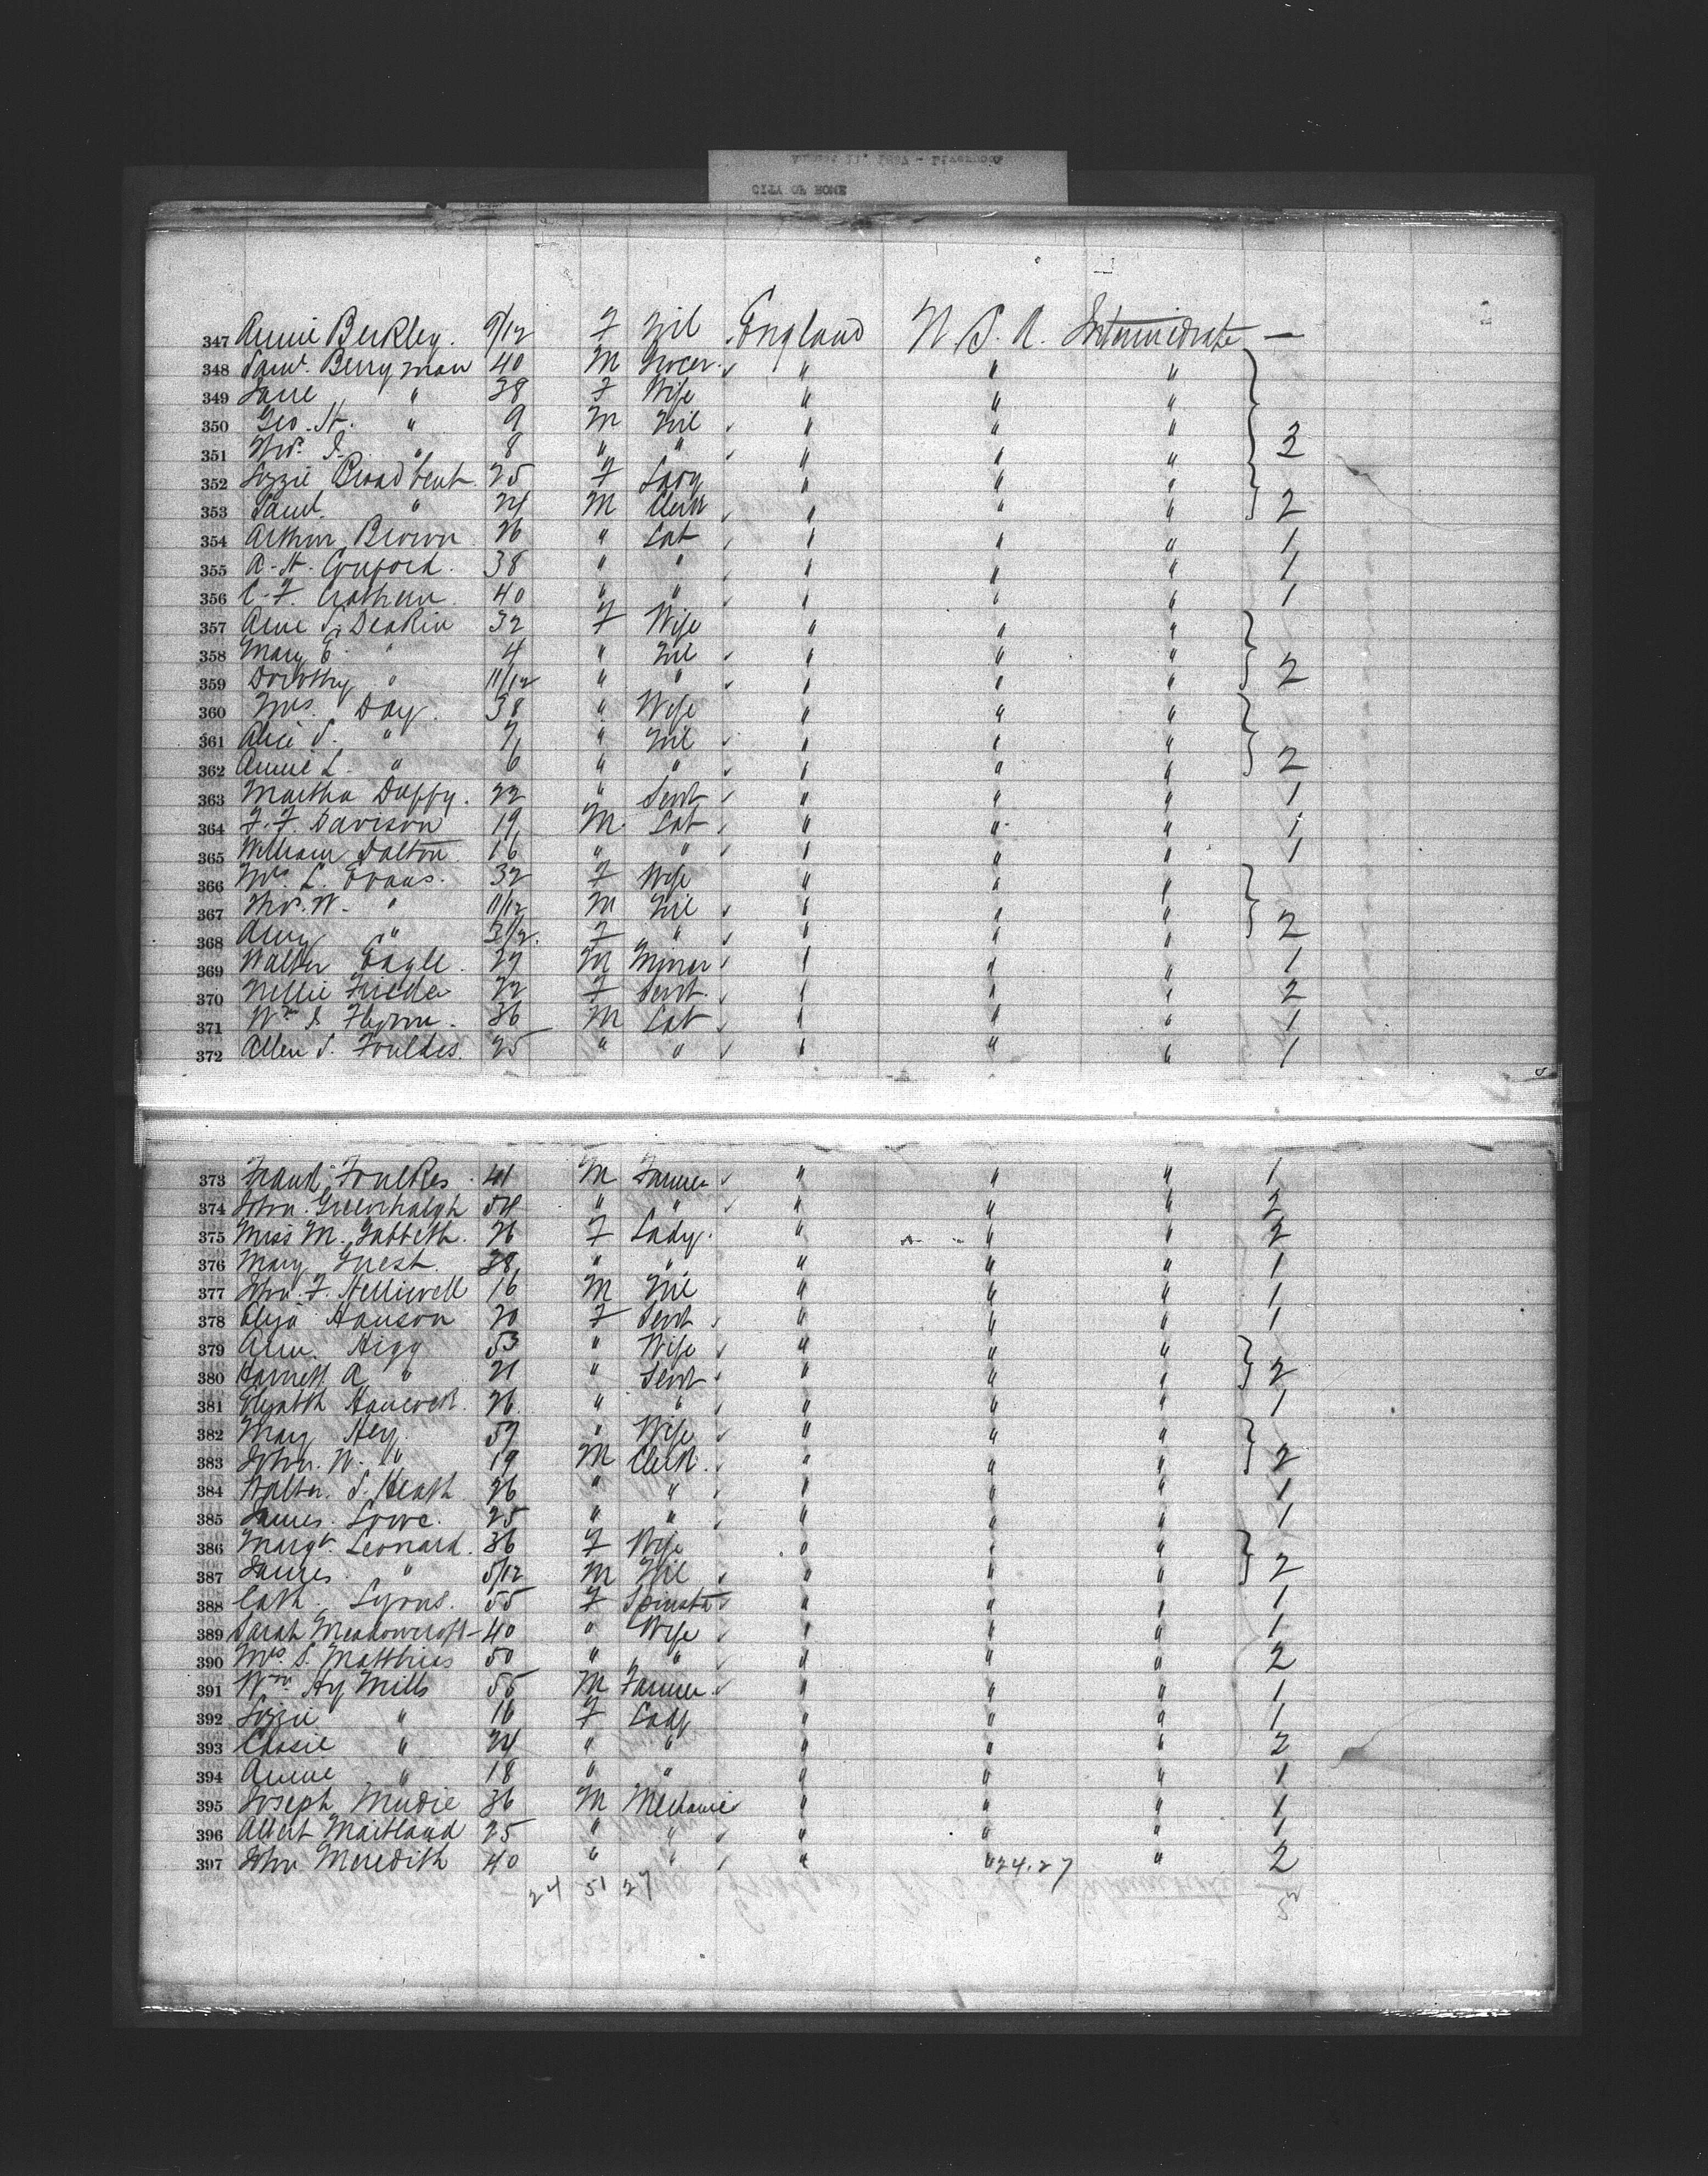 CITY OF ROME
347 Annie Berkley. 9/12 F Nil England U.S.A. Intermediate —
348 Saml. Berryman 40 M Grocer " " "
349 Jane " 38 F Wife " " "
350 Geo. H. " 9 M Nil " " "
351 " 8 " " " " " 3
352 Lizzie Broadbent 25 F Lady " " "
353 Saml. " 24 M Clerk " " " 2
354 Arthur Brown 26 " Lab " " " 1
355 A. H. 38 " " " " " 1
356 C. F. 40 " " " " " 1
357 Deakin 32 F Wife " " "
358 Mary E. " 4 " Nil " " "
359 Dorothy " 11/12 " " " " " 2
360 Mrs. Day. 38 " Wife " " "
361 Alice S. " 7 " Nil " " "
362 Annie L. " 6 " " " " " 2
363 Martha Duffy. 22 " Servt " " " 1
364 F. F. Davison 19 M. Lab " " " 1
365 William Dalton 16 " " " " " 1
366 Mrs. L. Evans. 32 F Wife " " "
367 W. " 11/12 M Nil " " "
368 Amy " 3/12. F " " " " 2
369 Walter Eagle. 27 M Miner " " " 1
370 Nellie 22 F Servt. " " " 2
371 Wm. Flynn. 36 M Lab " " " 1
372 Allen S. Foulds. 25 " " " " " 1
373 Foulkes 41 M Farmer " " " 1
374 John. Greenhalgh 54 " " " " " 2
375 Miss M. Gabbeth. 26 F Lady. " " " 2
376 Mary Guest. 38 " " " " " 1
377 Jno. F. Helliwell 16 M Nil " " " 1
378 Eliza Hanson 20 F Servt " " " 1
379 Ann. 53 " Wife " " "
380 Harriett A. " 21 " Servt " " " 2
381 26. " " " " " 1
382 Mary Hey. 59 " Wife " " "
383 John. W. " 19 M Clerk. " " " 2
384 Walter. S. Heath 26 " " " " " 1
385 James. Lowe. 25 " " " " " 1
386 Margt. Leonard. 36 F Wife " " "
387 James " 5/12 M Nil " " " 2
388 Cath. Lyons. 55 F Spinster " " " 1
389 Sarah Meadowcroft 40 " Wife " " " 1
390 Mrs S. Matthias 50 " " " " " 2
391 Wm. Hy Mills 55 M Farmer " " " 1
392 Lizzie " 16 F Lady " " " 1
393 " 24 " " " " " 2
394 Annie " 18 " " " " " 1
395 Joseph Mudie 36 M Mechanic " " " 1
396 Albert Maitland 25 " " " " " 1
397 John Meredith 40 " " " " 24.27 " 2
24 51 27